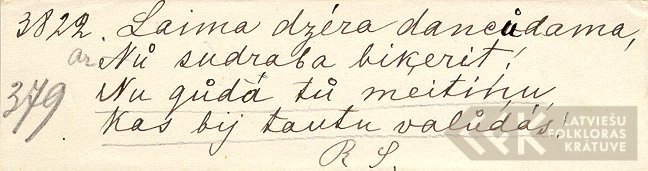 3822. Laima dzéra dancůdama,
ar Nů sudraba biķerit!
379 Nu gůdá tů meitiņu,
Kas bij tautu valůdás!
R S.
LATVIEŠU
FOLKLORAS
KRĀTUVE